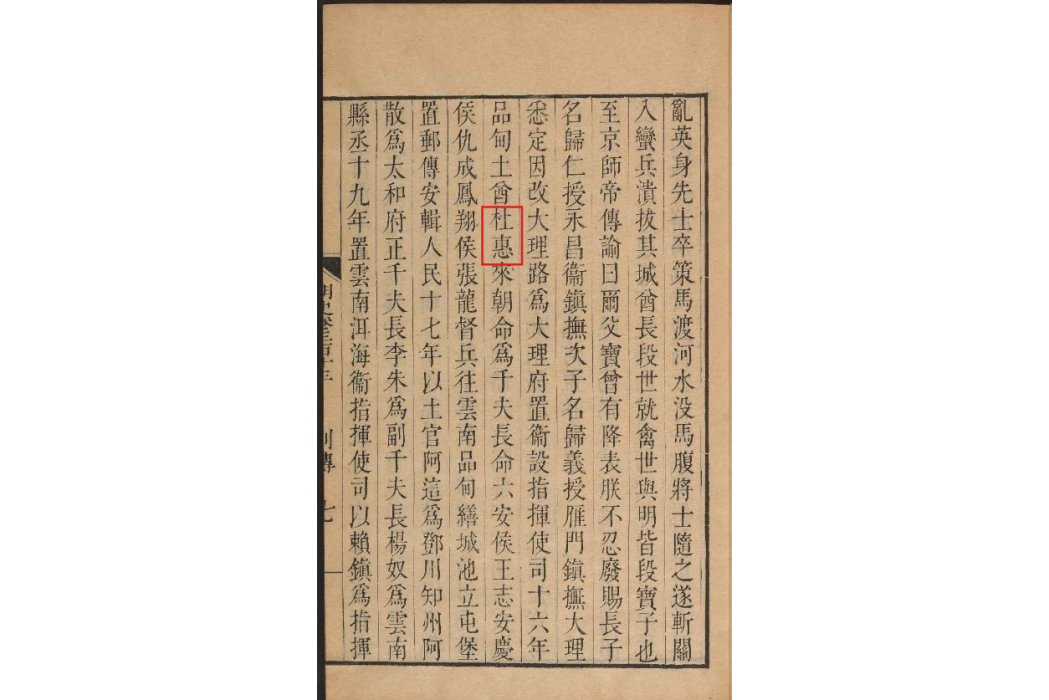 亂英身先士卒策馬渡河水没馬腹將士隨之遂斬關
入蠻兵潰拔其城酋長段世就禽世與明皆段寶子也
至京師帝傳諭曰爾父寶曾有降表朕不忍廢賜長子
名歸仁授永昌衞鎮撫次子名歸義授雁門鎮撫大理
悉定因改大理路爲大理府置衞設指揮使司十六年
品甸土酋杜惠來朝命爲千夫長命六安侯王志安慶
侯仇成鳳翔侯張龍督兵往雲南品甸繕城池立屯堡
置郵傳安輯人民十七年以土官阿這爲鄧川知州阿
散爲太和府正千夫長李朱爲副千夫長楊奴爲雲南
縣丞十九年置雲南洱海衞指揮使司以賴鎮爲指揮